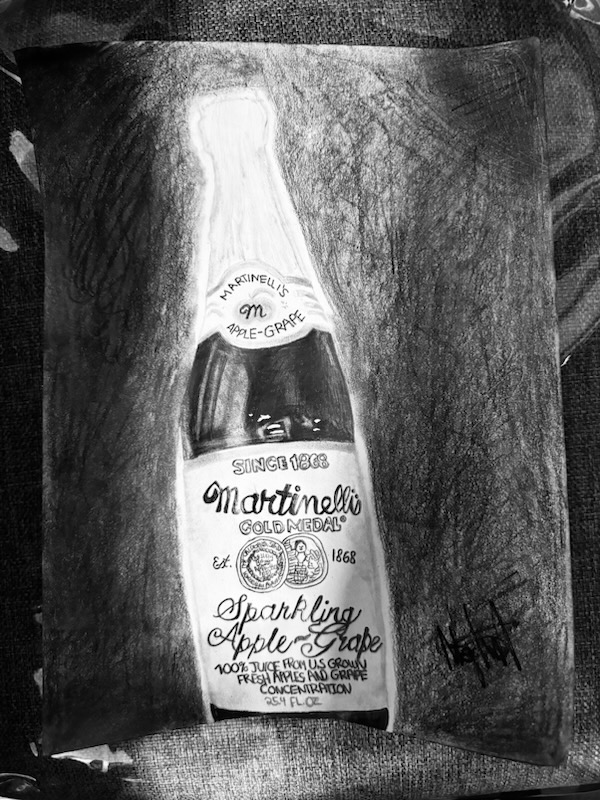 MARTINELLI'S
m
APPLE-GRAPE
SINCE 1868
Martinelli's
GOLD MEDAL®
Est. 1868
Sparkling
Apple-Grape
100% JUICE FROM U.S GROWN
FRESH APPLES AND GRAPE
CONCENTRATION
25.4 FL.OZ